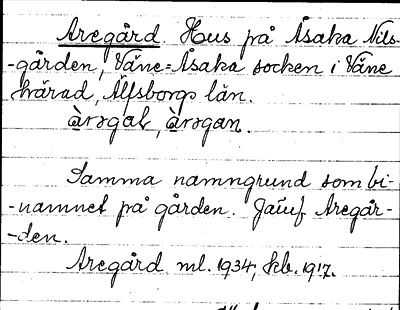 Aregård Hus på Åsaka Nils-
-gården, Väne-Åsaka socken i Väne
härad, Älfsborgs län.
àrəgaḷ, àrəgan.
Samma namngrund som bi-
-namnet på gården. Jämf Aregår-
-den.
Aregård ml. 1934, kb. 1917.